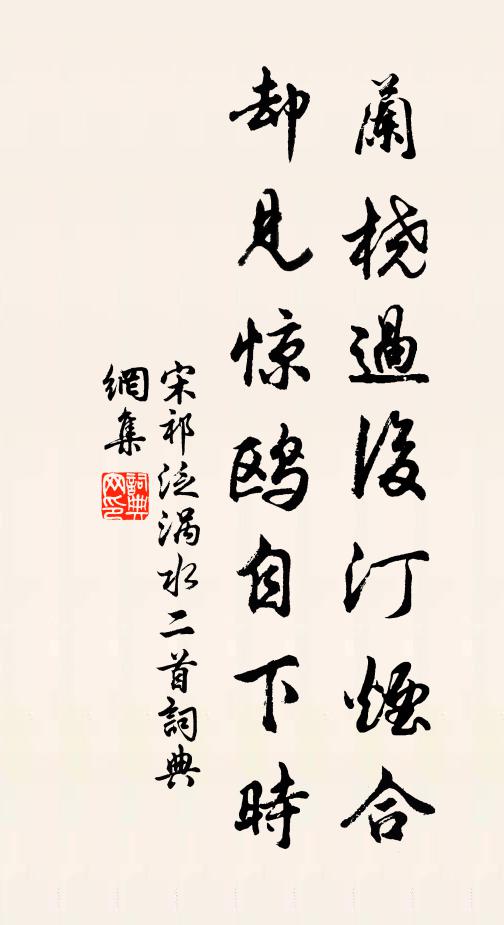 蘭橈過後汀煙合
却見惊鸥自下時
宋祁泛涡水二首詞典
網集
詞典
网印